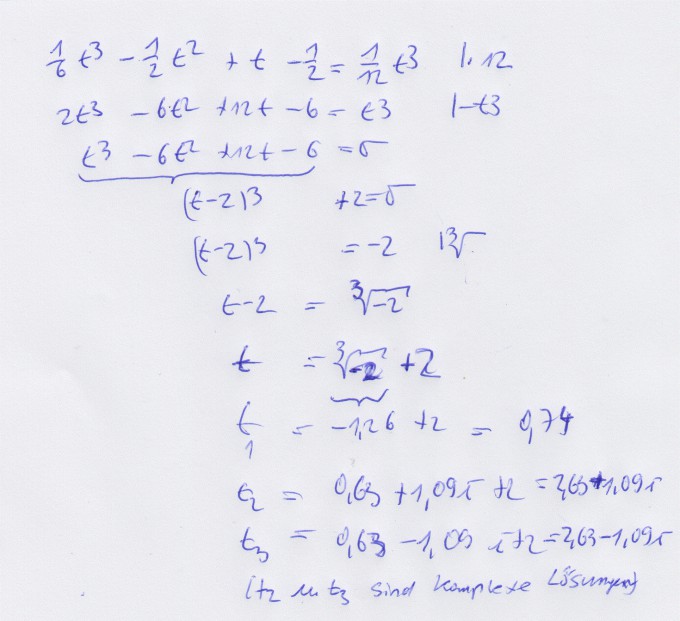 1/6 t³ - 1/2 t² + t - 1/2 = 1/12 t³ |· 12
2t³ - 6t² + 12t - 6 = t³ |- t³
t³ - 6t² + 12t - 6 = 0
(t-2)³ + 2 = 0
(t-2)³ = -2 |³√
t-2 = ³√-2
t = ³√-2 + 2
t₁ = -1,26 + 2 = 0,74
t₂ = 0,63 + 1,09i + 2 = 2,63 + 1,09i
t₃ = 0,63 - 1,09 i + 2 = 2,63 - 1,09i
(t₂ u t₃ sind komplexe Lösungen)